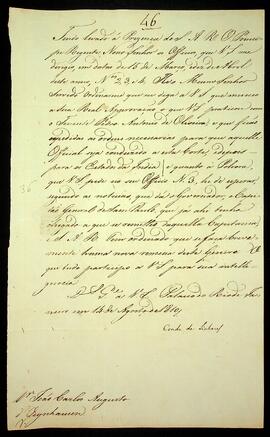 46
Tendo levado á Prezença de S. A. R. O Princi-
pe Regente Nosso Senhor os Officios, que V. S. me
dirigio em datas de 15 de Março, e de Abril
deste anno N.os 2, 3, e 4. Foi o Mesmo Senhor
Servido Ordenarme que eu diga a V. S. que mereceo
a Sua Real Approvação o que V. S. praticou com
o Tenente Pedro Antonio de Oliveira; e que ficão
expedidas as ordens necessarias para que aquelle
Official seja conduzido a esta Corte, depois
para os Estados da India; e quanto á Polvora
que V. S. pede no seu Officio N. 3, he de esperar,
segundo as noticias que dá o Governador, e Capi-
tão General de São Paulo, que já ahi tenha
chegado a que se remetteo daquella Capitania:
S. A. R. tem ordenado que se faça breve-
mente huma nova remessa deste Genero
que tudo participo a V. S. para sua intelli-
gencia.
D.s G.e a V. S. Palacio do Rio de Ja-
neiro em 14 de Agosto de 1810,
Conde de Linhares
S.r João Carlos Augusto
d'Oeynhausen